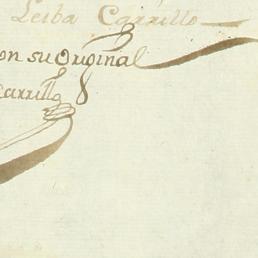 Leiba Carrillo
on su Original
Carrillo